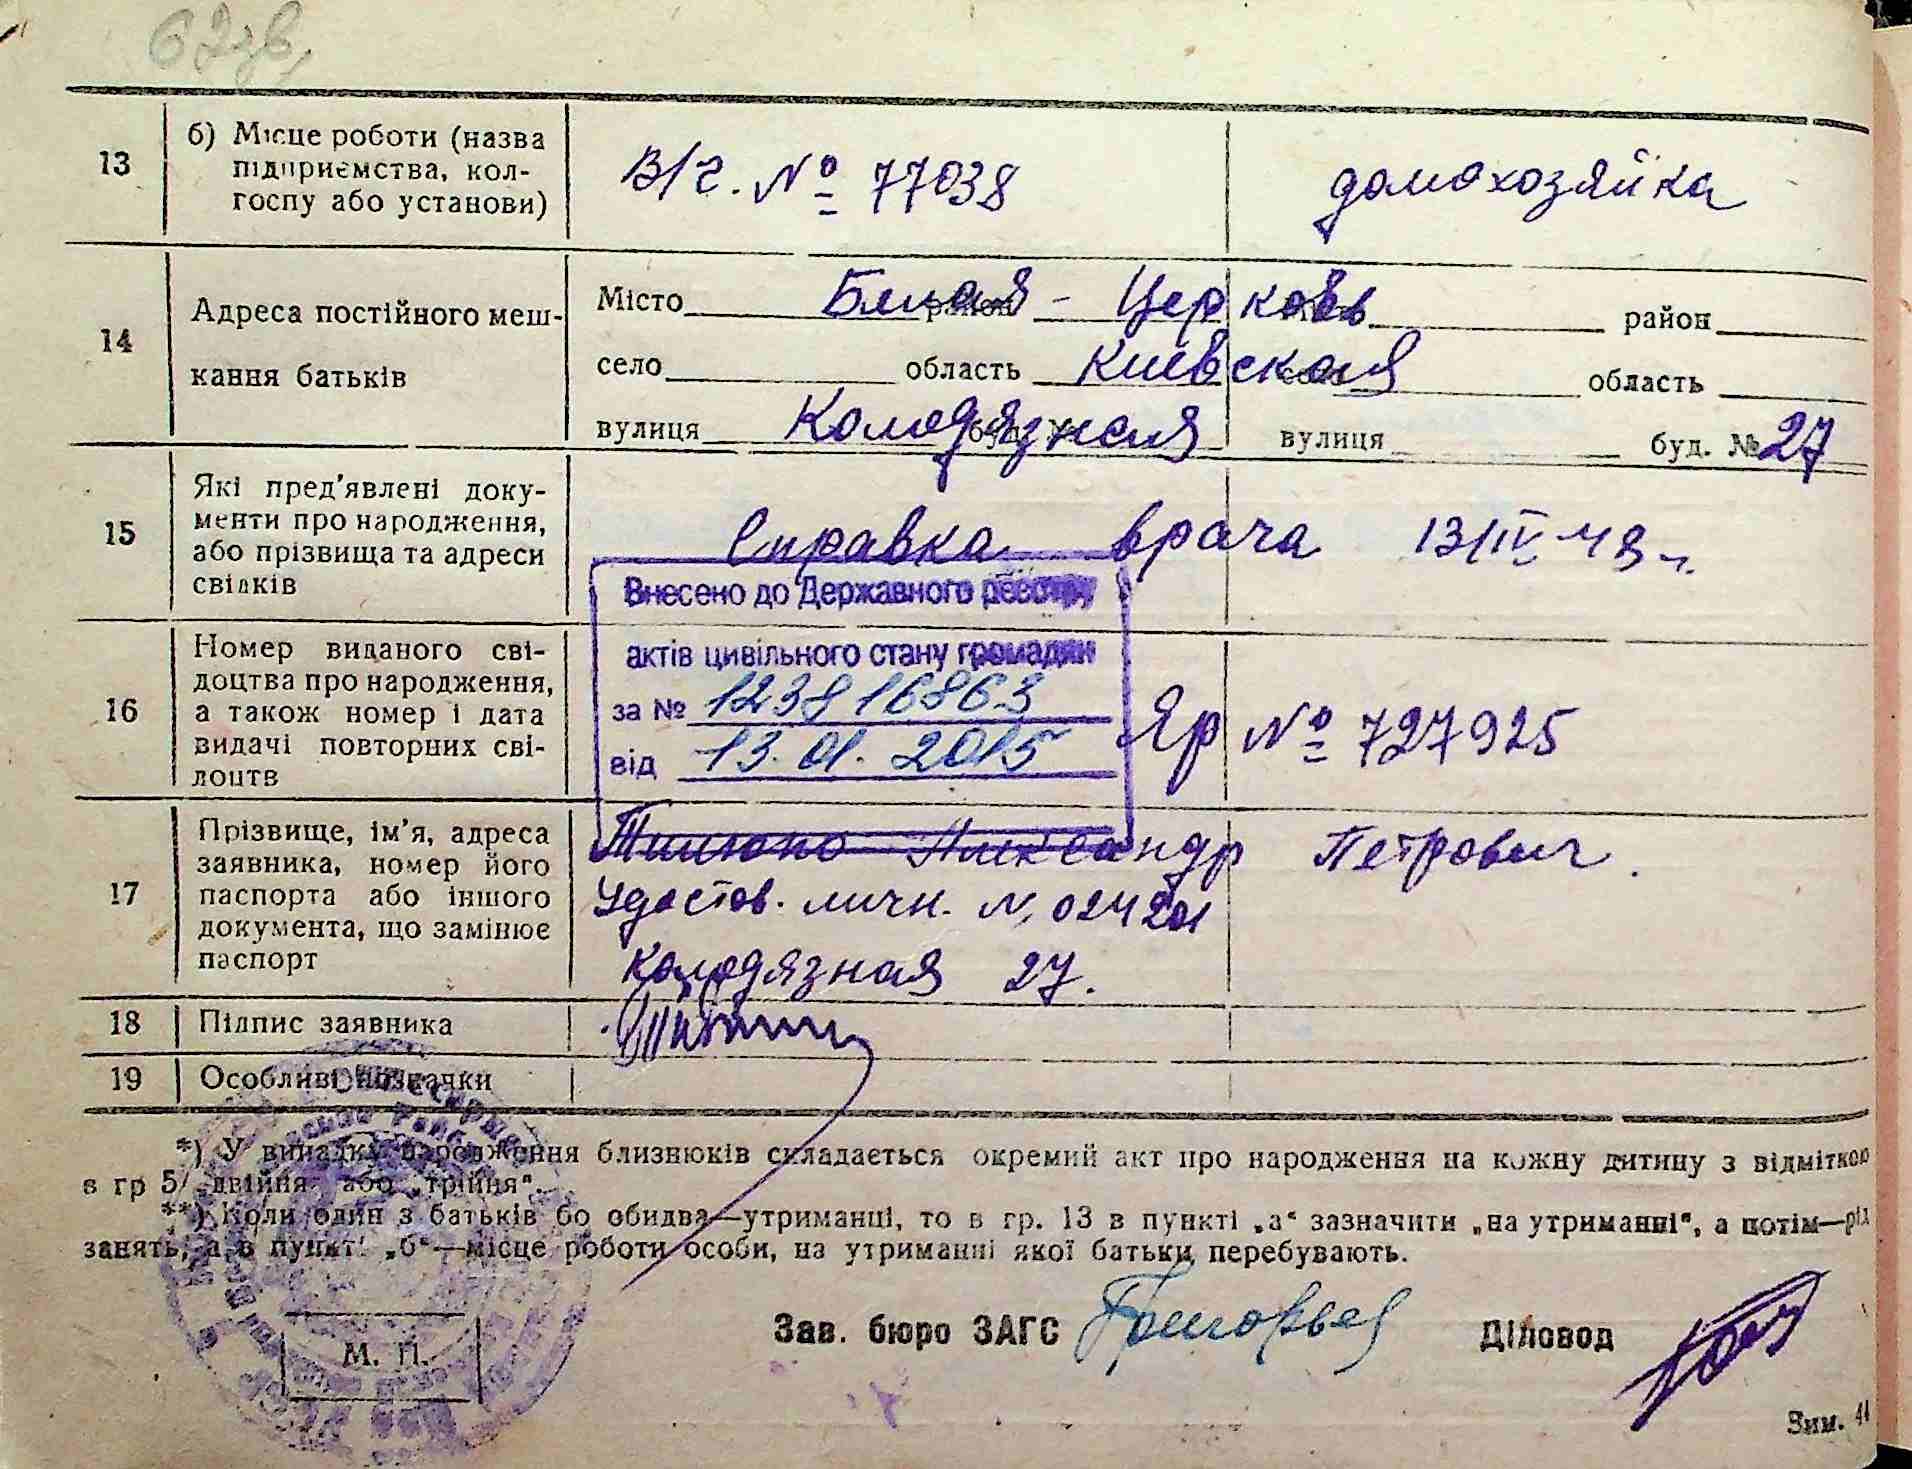 62зв,
13
б) Місце роботи (назва
підприємства, кол-
госпу або установи)
В/ч. № 77038
домохозяйка
14
Адреса постійного меш-
кання батьків
Місто Белая - Церковь район
село область Киевская область
вулиця Колодязная вулиця буд. № 27
15
Які пред'явлені доку-
менти про народження,
або прізвища та адреси
свідків
Справка врача 13/IV 49 г.
Внесено до Державного реєстру
актів цивільного стану громадян
за № 123816863
від 13.01.2015
16
Номер виданого сві-
доцтва про народження,
а також номер і дата
видачі повторних сві-
доцтв
Яр № 727925
17
Прізвище, ім'я, адреса
заявника, номер його
паспорта або іншого
документа, що замінює
паспорт
Александр Петрович.
Удостов. личн. N, 024201
Колодязная 27.
18
Підпис заявника
19
Особливі позначки
*) У випадку народження близнюків складається окремий акт про народження на кожну дитину з відміткою
в гр 5/ „двійня" або „трійня".
**) Коли один з батьків бо обидва—утриманці, то в гр. 13 в пункті „а" зазначити „на утриманні", а потім—рід
занять, а в пункті „б"—місце роботи особи, на утриманні якої батьки перебувають.
Зав. бюро ЗАГС Григорьев Діловод
М. П.
Зим. 44